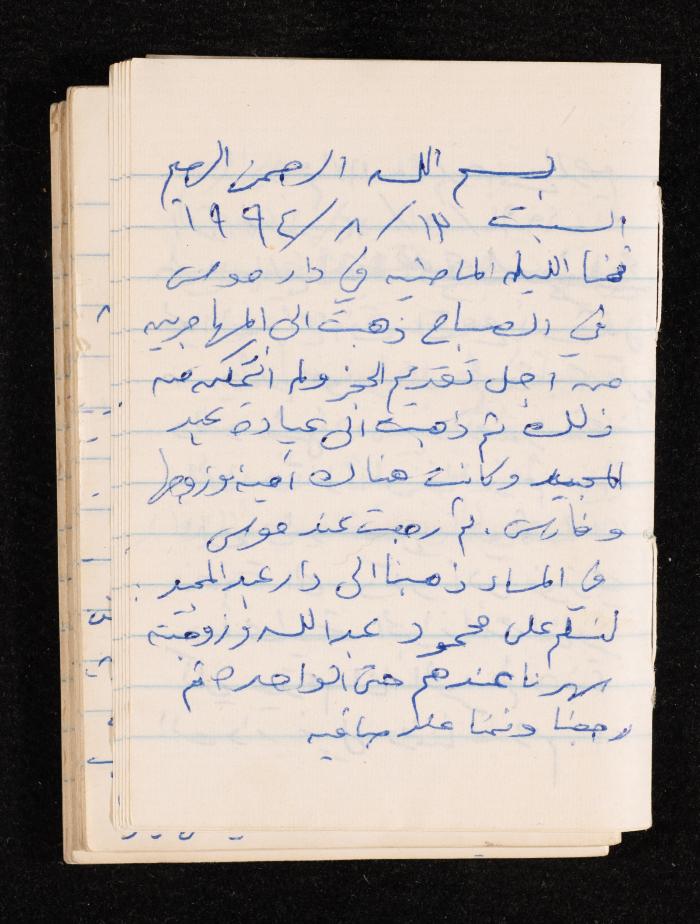 بسم الله الرحمن الرحيم
السبت ١٣/٨/١٩٩٤
نمنا الليلة الماضيه في دار موسى
في الصباح ذهبت الى المهاجرين
من اجل تقديم الحجز ولم اتمكن من
ذلك ثم ذهبت الى عيادة عبد
المجيد وكانت هناك أمينة وزوجها
وفارس . ثم رجعت عند موسى
في المساء ذهبنا الى دار عبد المجيد
لنسلم على محمود عبدالله وزوجته
سهرنا عندهم حتى الواحدة ثم
رجعنا ونمنا عند صافيه